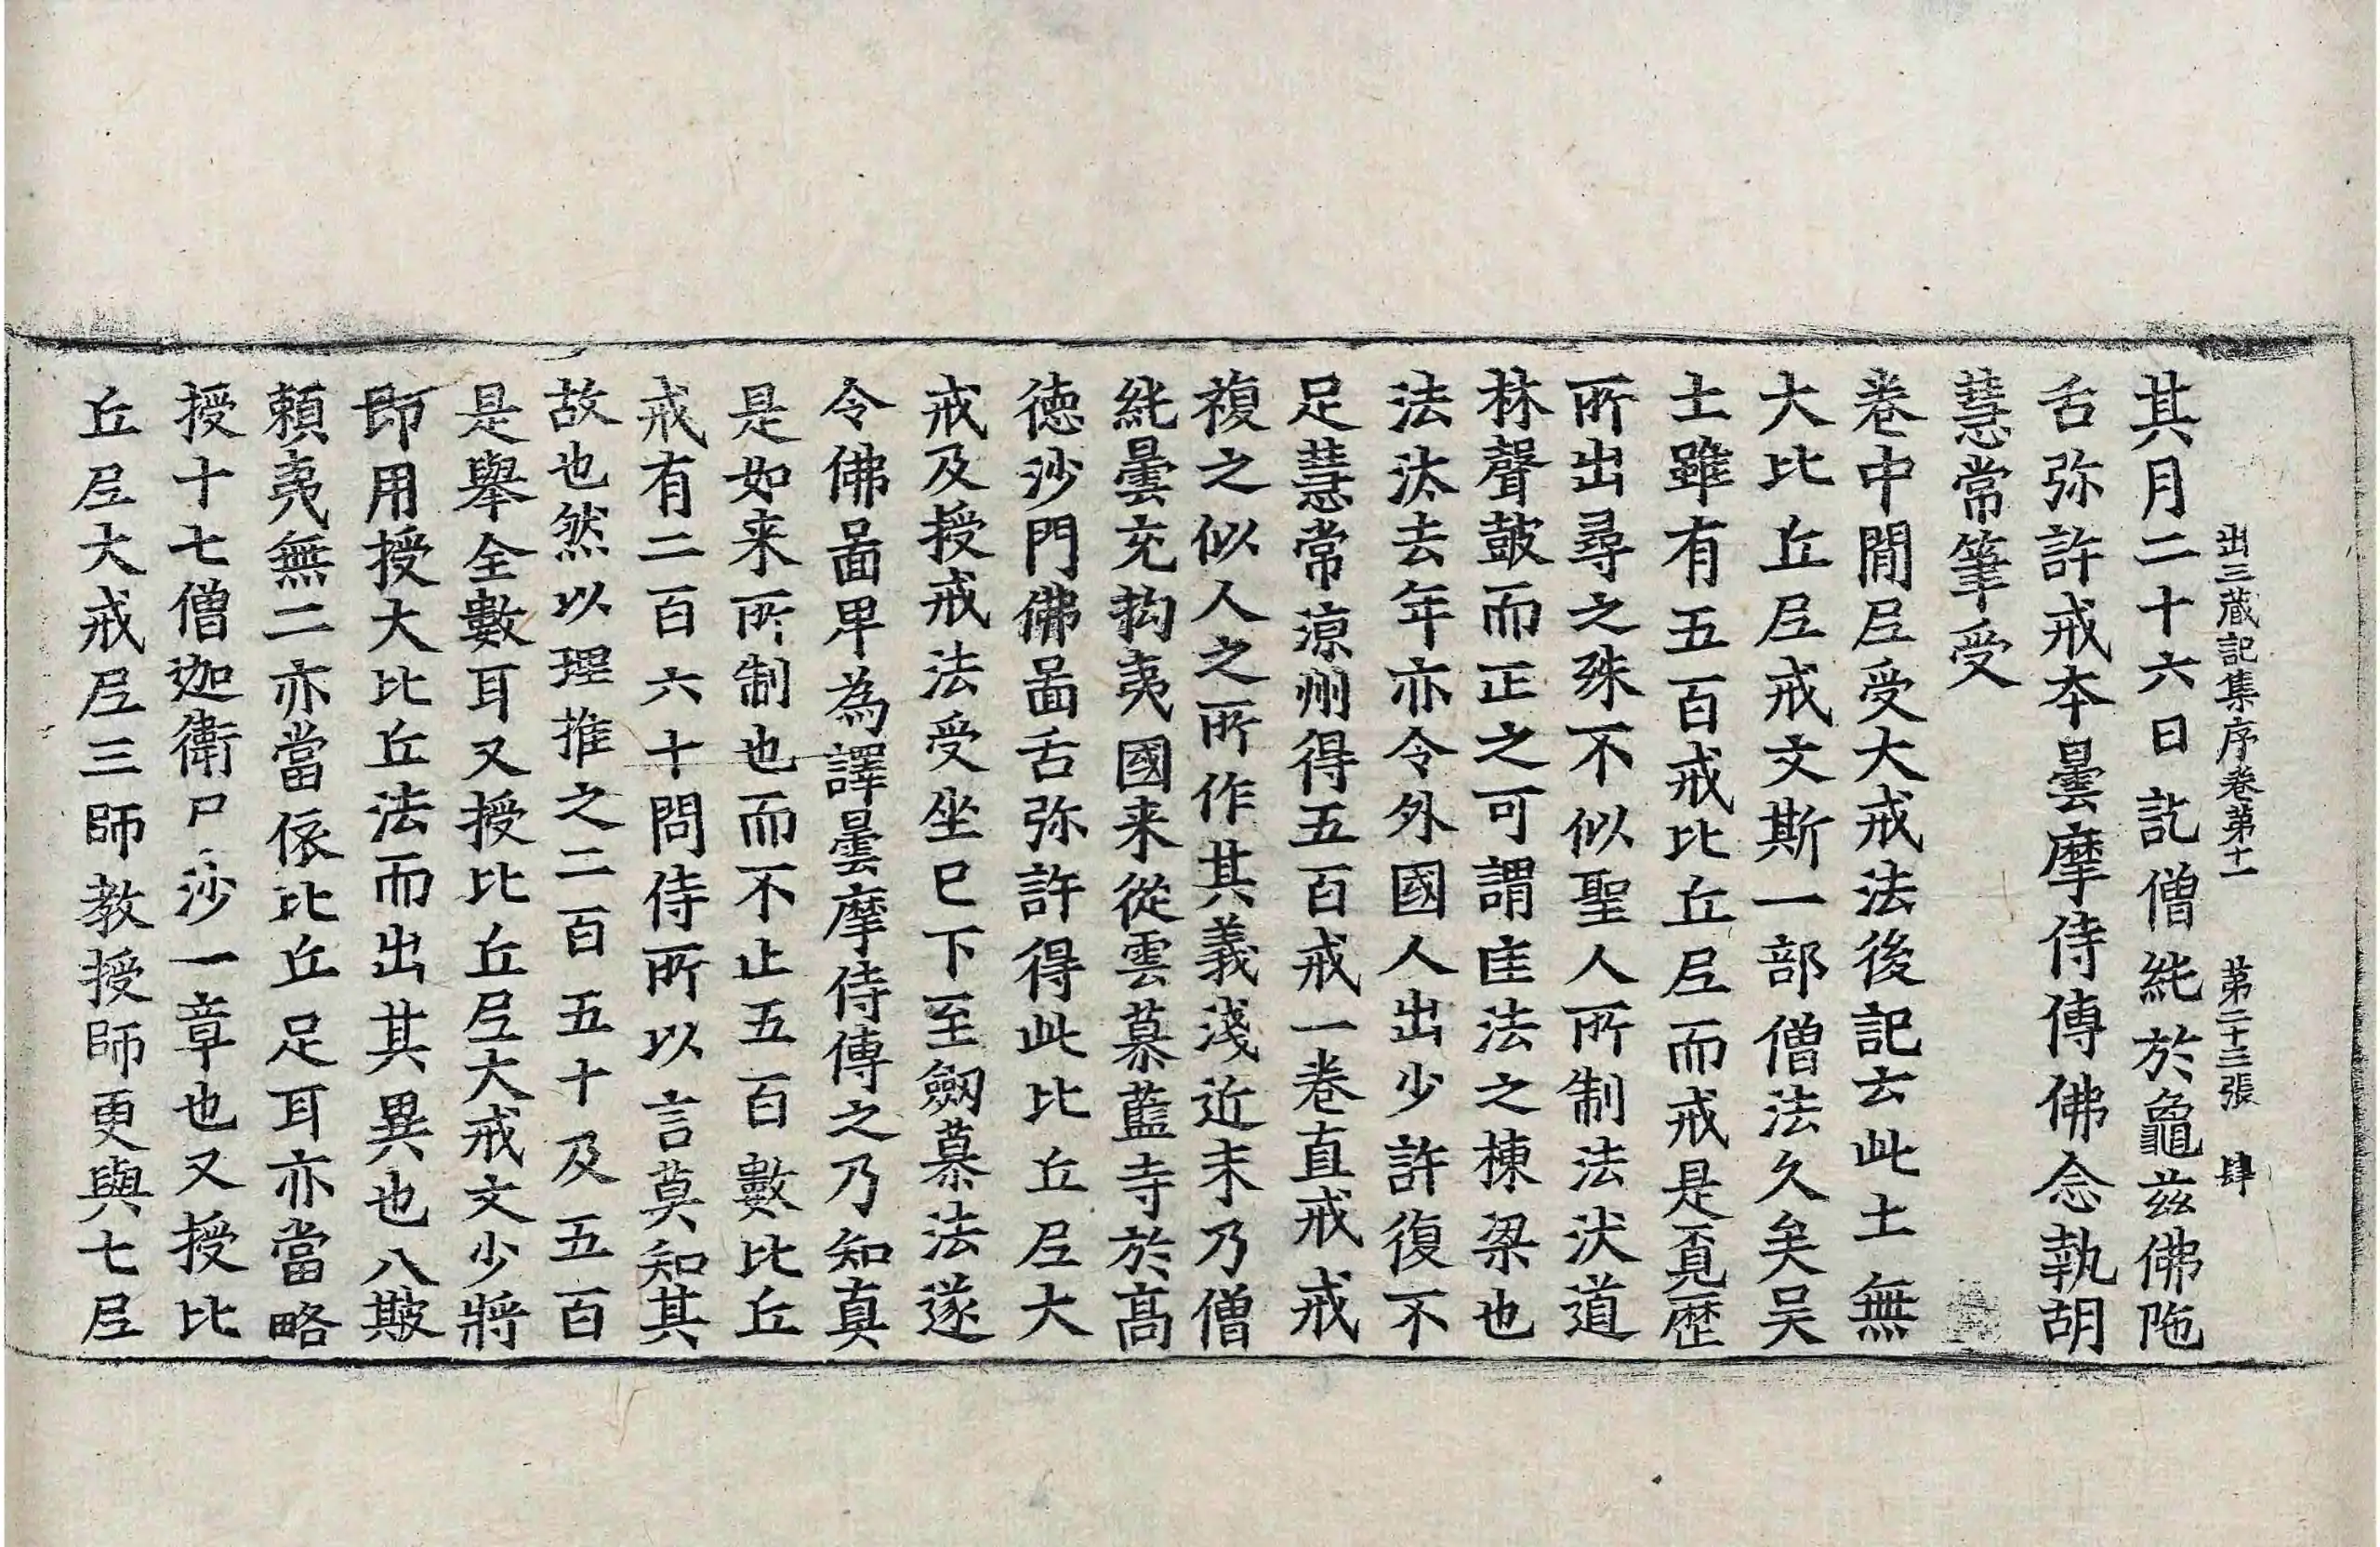 出三藏記集序卷第十一 第二十三張 肆
其月二十六日訖僧純於龜兹佛陁
舌弥許戒本曇摩侍傳佛念執胡
慧常筆受
卷中閒𡰱受大戒法後記云此土無
大比丘𡰱戒文斯一部僧法久矣吴
土雖有五百戒比丘𡰱而戒是覔歴
所出尋之殊不似聖人所制法汱道
林聲鼓而正之可謂匡法之棟梁也
法汰去年亦令外國人出少許復不
足慧常凉州得五百戒一卷直戒戒
複之似人之所作其義淺近未乃僧
純曇充拘夷國来從雲慕藍寺於髙
德沙門佛啚舌弥許得此比丘𡰱大
戒及授戒法受坐巳下至劔慕法遂
令佛啚卑為譯曇摩侍傳之乃知真
是如来所制也而不止五百數比丘
戒有二百六十問侍所以言莫知其
故也然以理推之二百五十及五百
是舉全數耳又授比丘𡰱大戒文少將
即用授大比丘法而出其異也八𣤶
賴夷無二亦當依比丘足耳亦當略
授十七僧迦衛尸沙一章也又授比
丘𡰱大戒𡰱三師教授師更與七𡰱